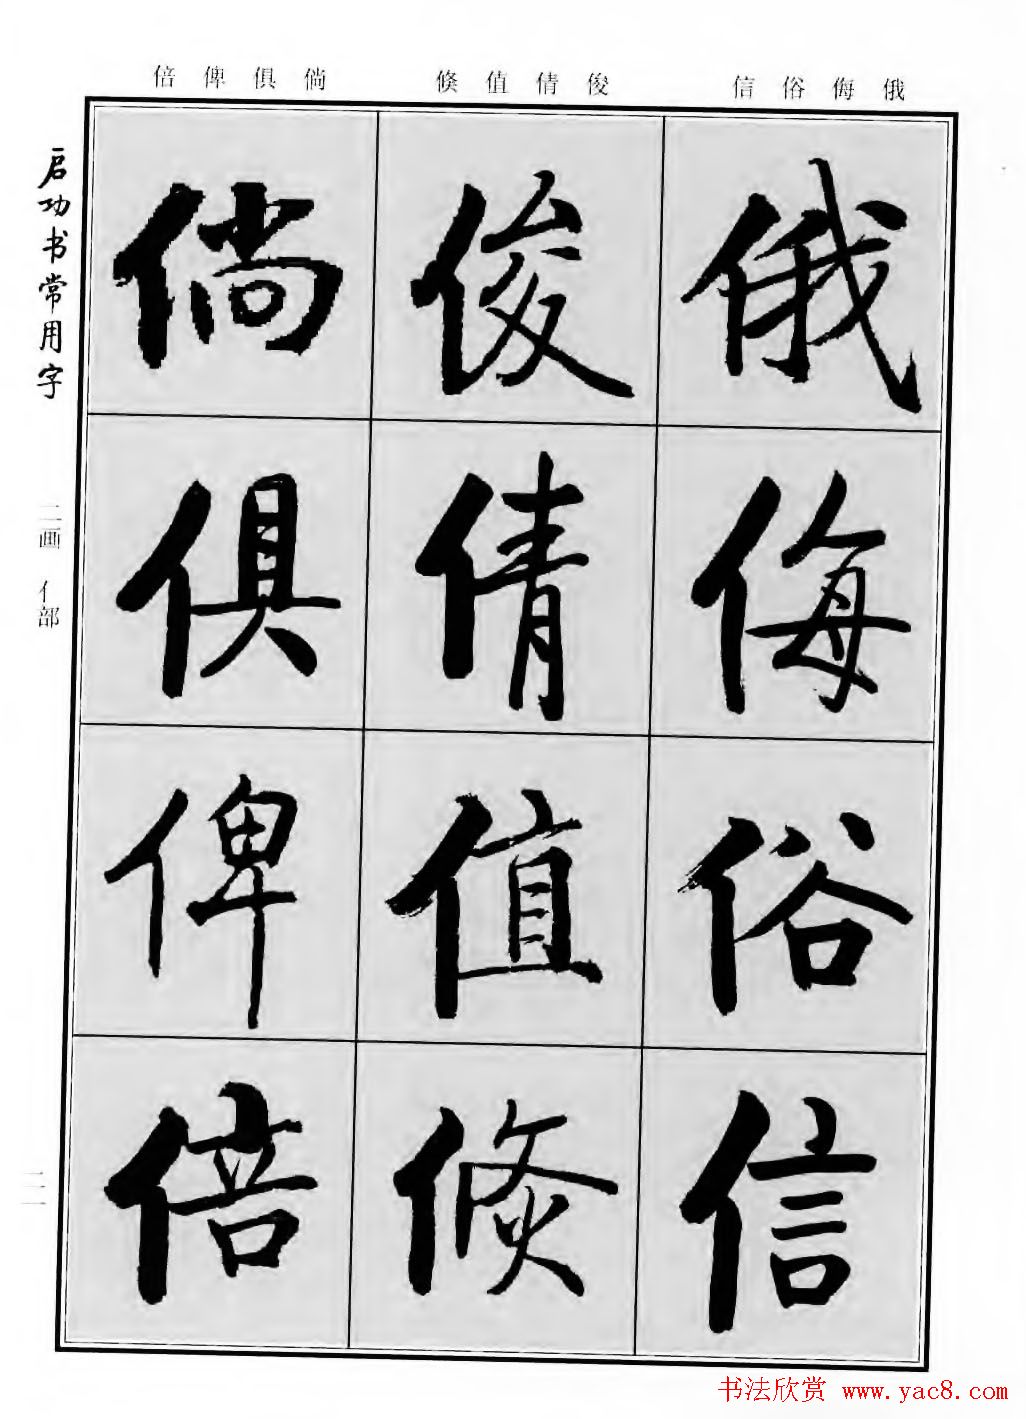 俄侮俗信
俊倩值倐
倘俱俾倍
俄
侮
俗
信
俊
倩
值
倐
倘
俱
俾
倍
启功书常用字
二画 亻部
书法欣赏 www.yac8.com